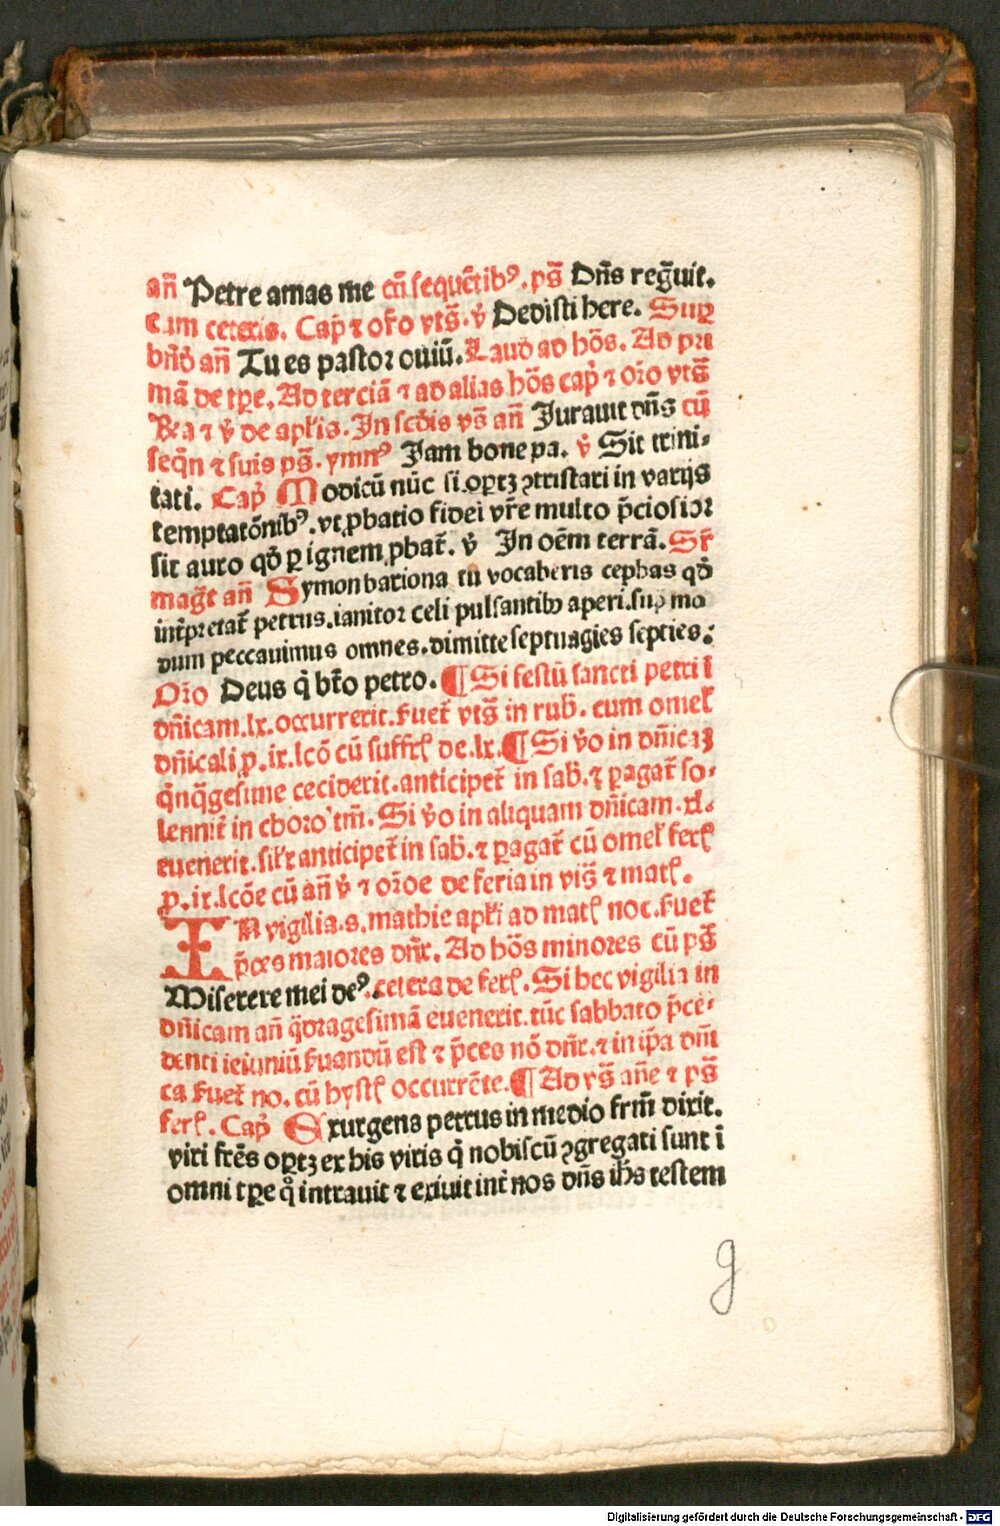 an̄ Petre amas me cū sequētibꝰ. ps̄ Dn̄s reḡuit.
Cum ceteris. Cap̄ ⁊ or̄o vts̄. v̄ Dedisti here. Suꝑ
bn̄d̄ an̄ Tu es pastor ouiū. Laud ad hōs. Ad pri
mā de tꝑe. Ad terciā ⁊ ad alias hōs cap̄ ⁊ or̄o vts̄
R̄a ⁊ v̄ de apl̄is. In scd̄is vs̄ an̄ Jurauit dn̄s cū
seqn̄ ⁊ suis ps̄. ymnꝰ Jam bone pa. v̄ Sit trini-
tati. Cap̄ Modicū nūc si oꝑtꝫ ꝯtristari in varijs
temptatōnibꝰ. vt ꝓbatio fidei vr̄e multo p̄ciosior
sit auro qd̄ ꝑ ignem ꝓbat̄. v̄ In oēm terrā. Sr̄
maḡt an̄ Symon bariona tu vocaberis cephas qd̄
int̄pretat̄ petrus. ianitor celi pulsantibꝰ aperi. suꝑ mo
dum peccauimus omnes. dimitte septuagies septies:
Or̄o Deus q̄ bt̄o petro. ¶ Si festū sancti petri ī
dn̄icam. lx. occurrerit. ẜuet̄ vts̄ in rub̄. cum omel̄
dn̄icali ꝓ. ix. lcō cū suffrꝭ de. lx. ¶ Si v̄o in dn̄icaꝫ
q̄nq̄gesime ceciderit. anticipet̄ in sab̄. ⁊ ꝑagat̄ so-
lennit̄ in choro tm̄. Si v̄o in aliquam dn̄icam. xl.
euenerit. sil̄r anticipet̄ in sab̄. ⁊ ꝑagat̄ cū omel̄ ferꝭ
ꝓ. ix. lcōe cū an̄ v̄ ⁊ or̄oe de feria in vis̄ ⁊ matꝭ.
IN vigilia. s. mathie apl̄i ad matꝭ noc. ẜuet̄
p̄ces maiores dn̄r. Ad hōs minores cū ps̄
Miserere mei deꝰ. cetera de ferꝭ. Si hec vigilia in
dn̄icam an̄ q̄dragesimā euenerit. tūc sabbato p̄ce-
denti ieiuniū ẜuandū est ⁊ p̄ces nō dn̄r. ⁊ in ip̄a dn̄i
ca ẜuet̄ no. cū hystꝭ occurrēte. ¶ Ad vs̄ an̄e ⁊ ps̄
ferꝭ. Cap̄ Exurgens petrus in medio frm̄ dixit.
viri frēs oꝑtꝫ ex his viris q̄ nobiscū ꝯgregati sunt ī
omni tꝑe q̊ intrauit ⁊ exiuit int̄ nos dn̄s ih̄s testem
g
Digitalisierung gefördert durch die Deutsche Forschungsgemeinschaft - DFG